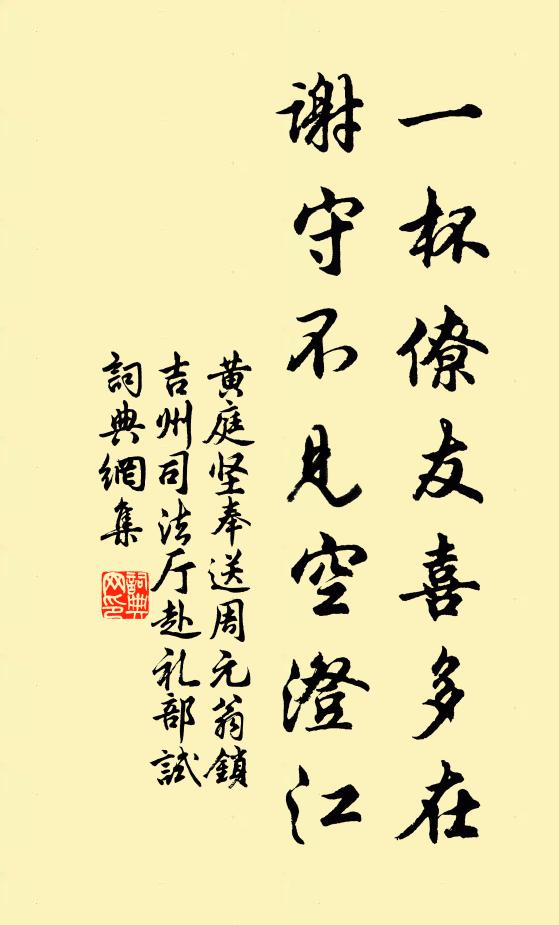 一杯僚友喜多在
謝守不見空澄江
黄庭坚奉送周元翁鎖
吉州司法厅赴礼部試
詞典網集
詞典網印